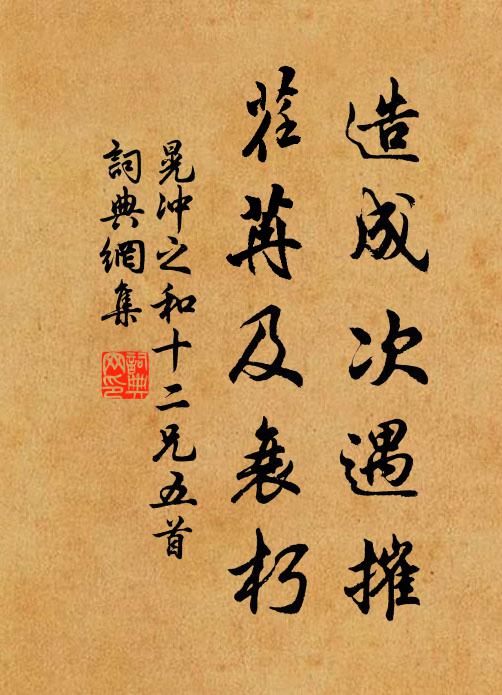 造成次遇摧
荏苒及衰朽
晁冲之和十二兄五首
詞典網集
詞典網印